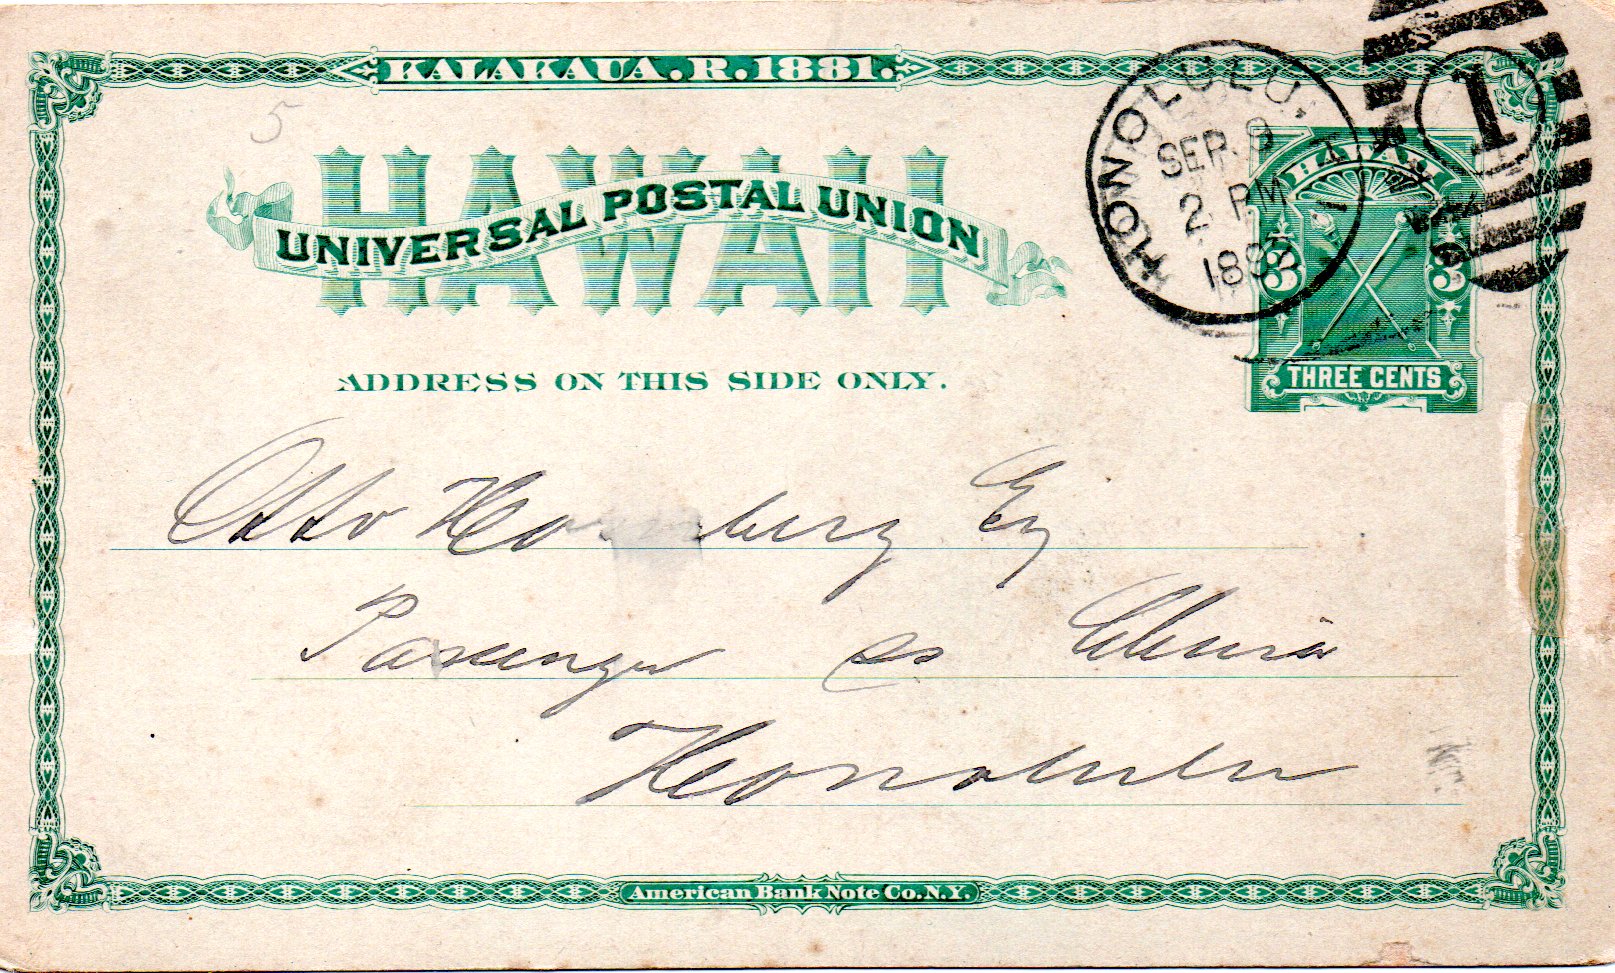 KALAKAUA. R. 1881.
5
HAWAII
UNIVERSAL POSTAL UNION
ADDRESS ON THIS SIDE ONLY.
HONOLULU,
SEP. 9
2 PM
1
HAWAII
3 3
THREE CENTS
Otto berg Esq
Passenger
Honolulu
American Bank Note Co. N.Y.